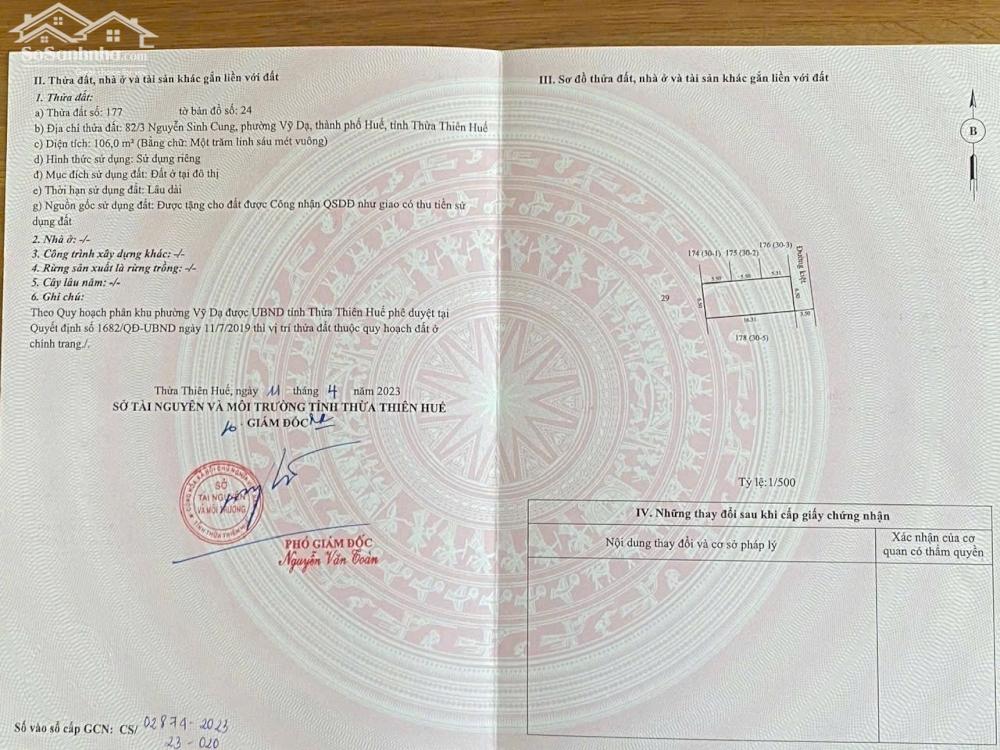 SoSanhnha.com
II. Thửa đất, nhà ở và tài sản khác gắn liền với đất
1. Thửa đất:
a) Thửa đất số: 177 tờ bản đồ số: 24
b) Địa chỉ thửa đất: 82/3 Nguyễn Sinh Cung, phường Vỹ Dạ, thành phố Huế, tỉnh Thừa Thiên Huế
c) Diện tích: 106,0 m² (Bằng chữ: Một trăm linh sáu mét vuông)
d) Hình thức sử dụng: Sử dụng riêng
đ) Mục đích sử dụng đất: Đất ở tại đô thị
e) Thời hạn sử dụng đất: Lâu dài
g) Nguồn gốc sử dụng đất: Được tặng cho đất được Công nhận QSDĐ như giao có thu tiền sử
dụng đất
2. Nhà ở: -/-
3. Công trình xây dựng khác: -/-
4. Rừng sản xuất là rừng trồng: -/-
5. Cây lâu năm: -/-
6. Ghi chú:
Theo Quy hoạch phân khu phường Vỹ Dạ được UBND tỉnh Thừa Thiên Huế phê duyệt tại
Quyết định số 1682/QĐ-UBND ngày 11/7/2019 thì vị trí thửa đất thuộc quy hoạch đất ở
chỉnh trang./.
Thừa Thiên Huế, ngày 11 tháng 4 năm 2023
SỞ TÀI NGUYÊN VÀ MÔI TRƯỜNG TỈNH THỪA THIÊN HUẾ
GIÁM ĐỐC
SỞ
TÀI NGUYÊN
VÀ MÔI TRƯỜNG
PHÓ GIÁM ĐỐC
Nguyễn Văn Toàn
Số vào sổ cấp GCN: CS/ 02874-2023
23-020
III. Sơ đồ thửa đất, nhà ở và tài sản khác gắn liền với đất
B
174 (30-1) 175 (30-2) 176 (30-3)
Đường kiệt
5.50 5.50 5.31
29
6.50 6.50
16.31 3.50
178 (30-5)
Tỷ lệ: 1/500
IV. Những thay đổi sau khi cấp giấy chứng nhận
Nội dung thay đổi và cơ sở pháp lý
Xác nhận của cơ
quan có thẩm quyền